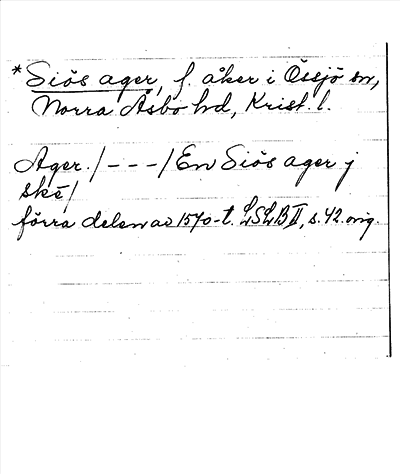 *Siös ager, f. åker i Össjö sn,
Norra Åsbo hd, Krist. l.
Ager. /---/ En Siös ager j
ske/
förra delen av 1570-t. LSLB II, s. 42. orig.